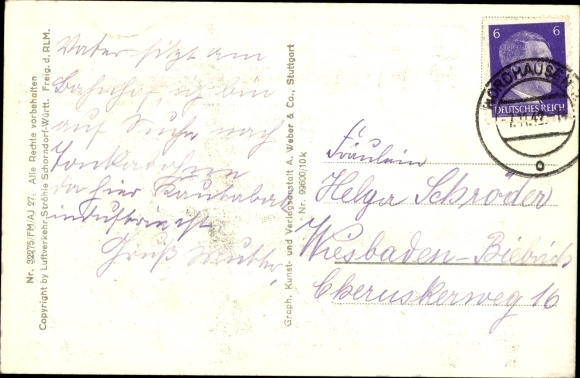 Nr. 32275/FM/AJ 27. Alle Rechte vorbehalten
Copyright by Luftverkehr Strähle Schorndorf-Württ. Freig. d. RLM.
Vater sitzt am
Bahnhof, ich bin
auf Suche nach
da hier Kautabak
industrie ist
Gruß Mutter
Graph. Kunst- und Verlagsanstalt A. Weber & Co., Stuttgart
Nr. 99600/10k
6 6
DEUTSCHES REICH
NORDHAUSEN
Fräulein
Helga Schröder
Wiesbaden-Biebrich
Cheruskerweg 16